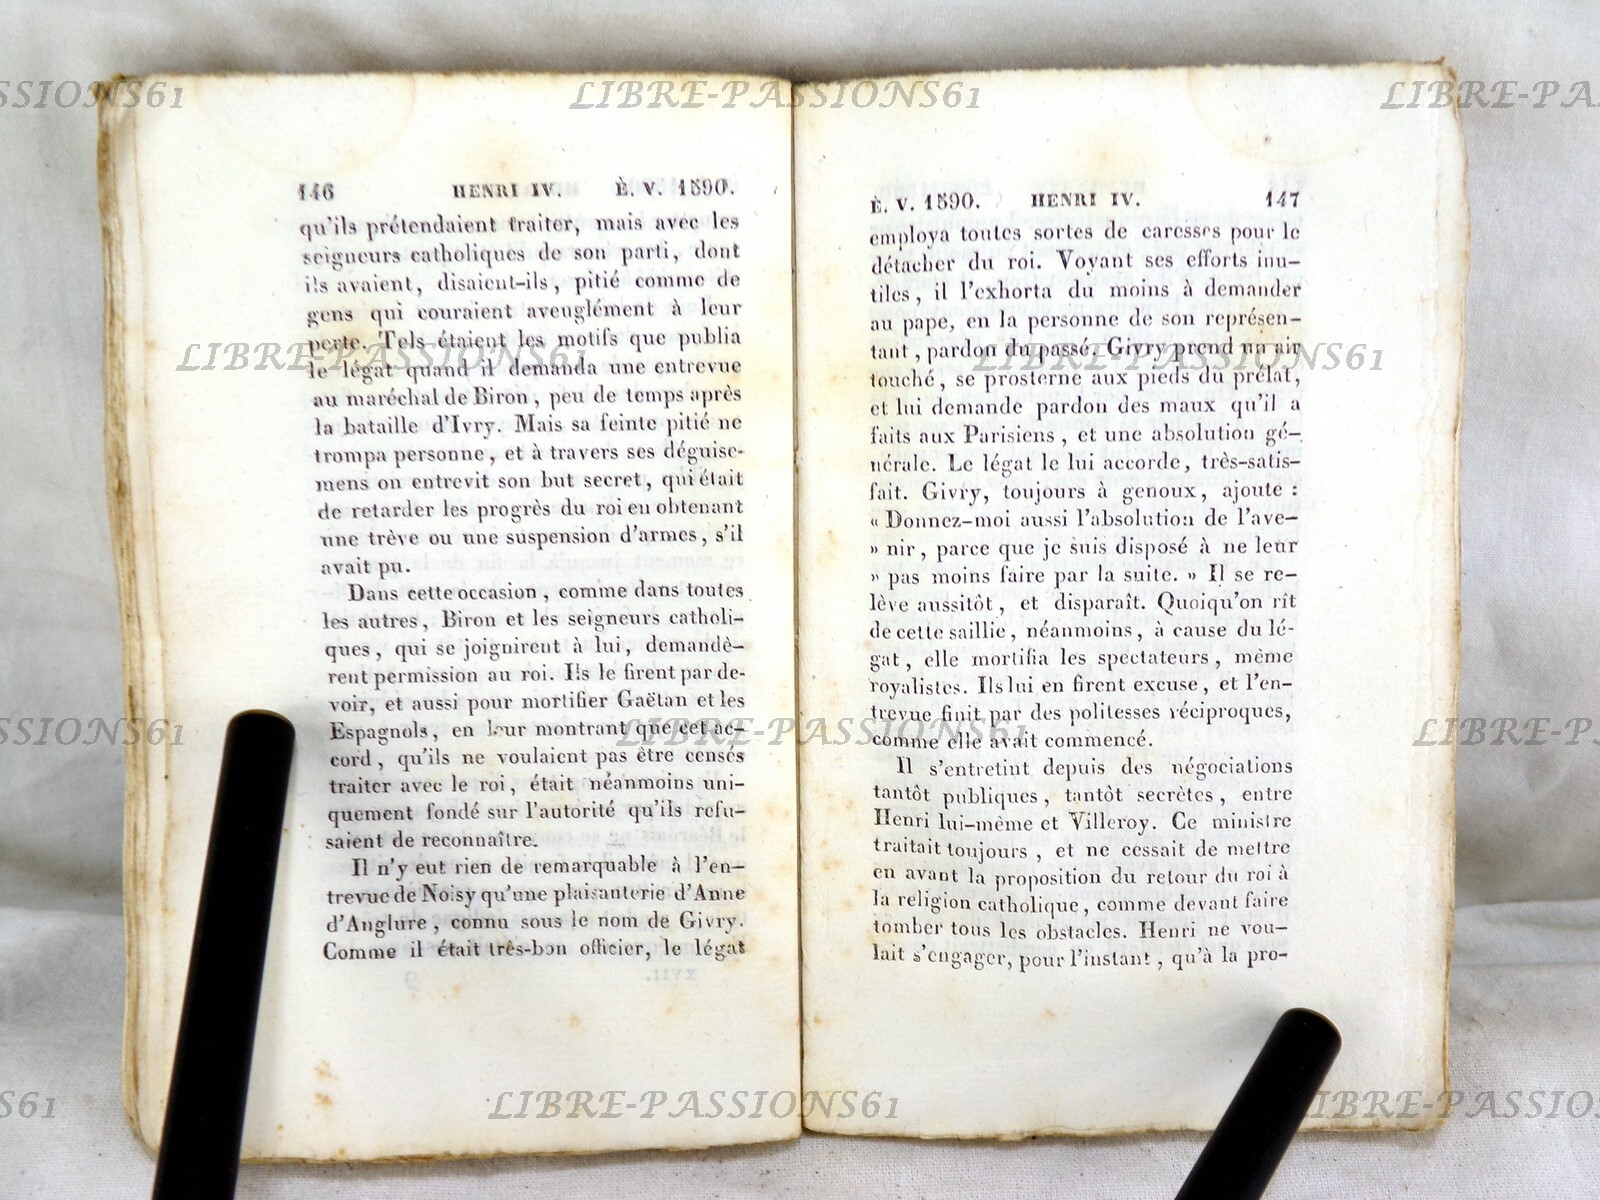 146 HENRI IV. È. V. 1590.
qu'ils prétendaient traiter, mais avec les
seigneurs catholiques de son parti, dont
ils avaient, disaient-ils, pitié comme de
gens qui couraient aveuglément à leur
perte. Tels étaient les motifs que publia
le légat quand il demanda une entrevue
au maréchal de Biron, peu de temps après
la bataille d'Ivry. Mais sa feinte pitié ne
trompa personne, et à travers ses déguise-
mens on entrevit son but secret, qui était
de retarder les progrès du roi en obtenant
une trève ou une suspension d'armes, s'il
avait pu.
Dans cette occasion, comme dans toutes
les autres, Biron et les seigneurs catholi-
ques, qui se joignirent à lui, demandè-
rent permission au roi. Ils le firent par de-
voir, et aussi pour mortifier Gaëtan et les
Espagnols, en leur montrant que cet ac-
cord, qu'ils ne voulaient pas être censés
traiter avec le roi, était néanmoins uni-
quement fondé sur l'autorité qu'ils refu-
saient de reconnaître.
Il n'y eut rien de remarquable à l'en-
trevue de Noisy qu'une plaisanterie d'Anne
d'Anglure, connu sous le nom de Givry.
Comme il était très-bon officier, le légat
È. V. 1590. HENRI IV. 147
employa toutes sortes de caresses pour le
détacher du roi. Voyant ses efforts inu-
tiles, il l'exhorta du moins à demander
au pape, en la personne de son représen-
tant, pardon du passé. Givry prend un air
touché, se prosterne aux pieds du prélat,
et lui demande pardon des maux qu'il a
faits aux Parisiens, et une absolution gé-
nérale. Le légat le lui accorde, très-satis-
fait. Givry, toujours à genoux, ajoute :
« Donnez-moi aussi l'absolution de l'ave-
» nir, parce que je suis disposé à ne leur
» pas moins faire par la suite. » Il se re-
lève aussitôt, et disparaît. Quoiqu'on rît
de cette saillie, néanmoins, à cause du lé-
gat, elle mortifia les spectateurs, même
royalistes. Ils lui en firent excuse, et l'en-
trevue finit par des politesses réciproques,
comme elle avait commencé.
Il s'entretint depuis des négociations
tantôt publiques, tantôt secrètes, entre
Henri lui-même et Villeroy. Ce ministre
traitait toujours, et ne cessait de mettre
en avant la proposition du retour du roi à
la religion catholique, comme devant faire
tomber tous les obstacles. Henri ne vou-
lait s'engager, pour l'instant, qu'à la pro-
LIBRE-PASSIONS61